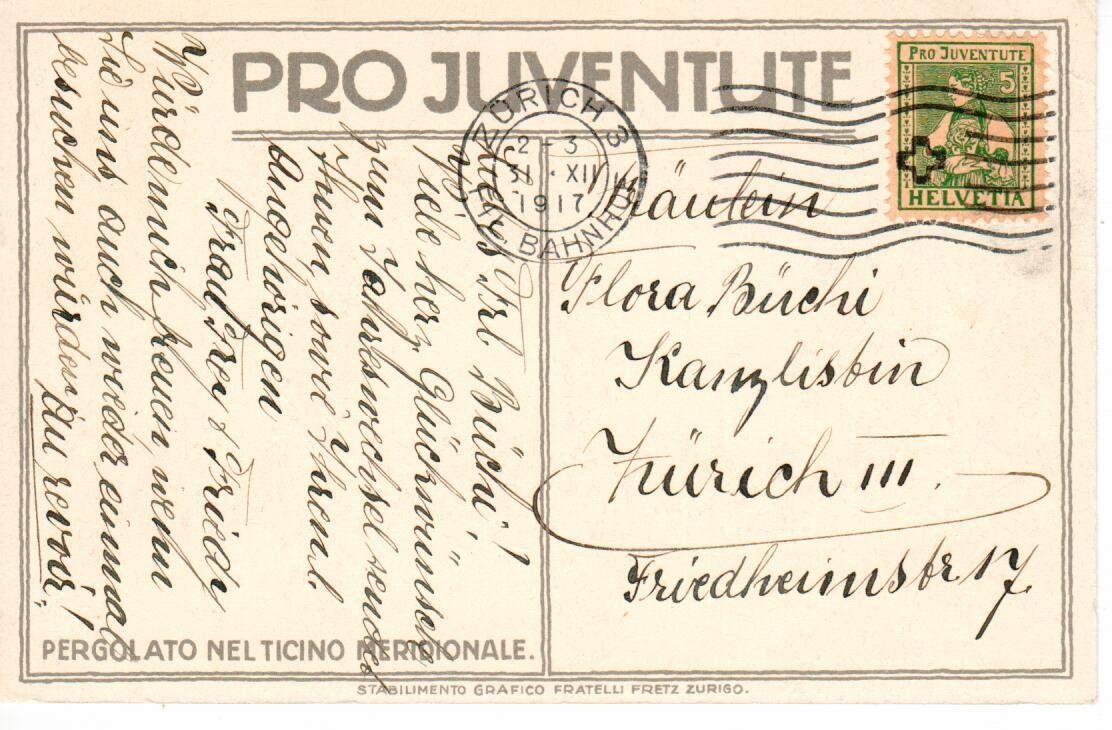 PRO JUVENTUTE
PRO JUVENTUTE
5
HELVETIA
ZÜRICH 3
2-3
31.XII
1917
BAHNHOF
Liebes Frl Büchi!
Viele herz. Glückwünsche
zum Jahreswechsel sendet
Ihnen, sowie Ihren l.
Angehörigen
Würde mich freuen, wenn
Sie uns auch wieder einmal
besuchen würden. Au revoir!
Fräulein
Flora Büchi
Kanzlistin
Zürich III.
Friedheimstr 17.
PERGOLATO NEL TICINO MERIDIONALE.
STABILIMENTO GRAFICO FRATELLI FRETZ ZURIGO.